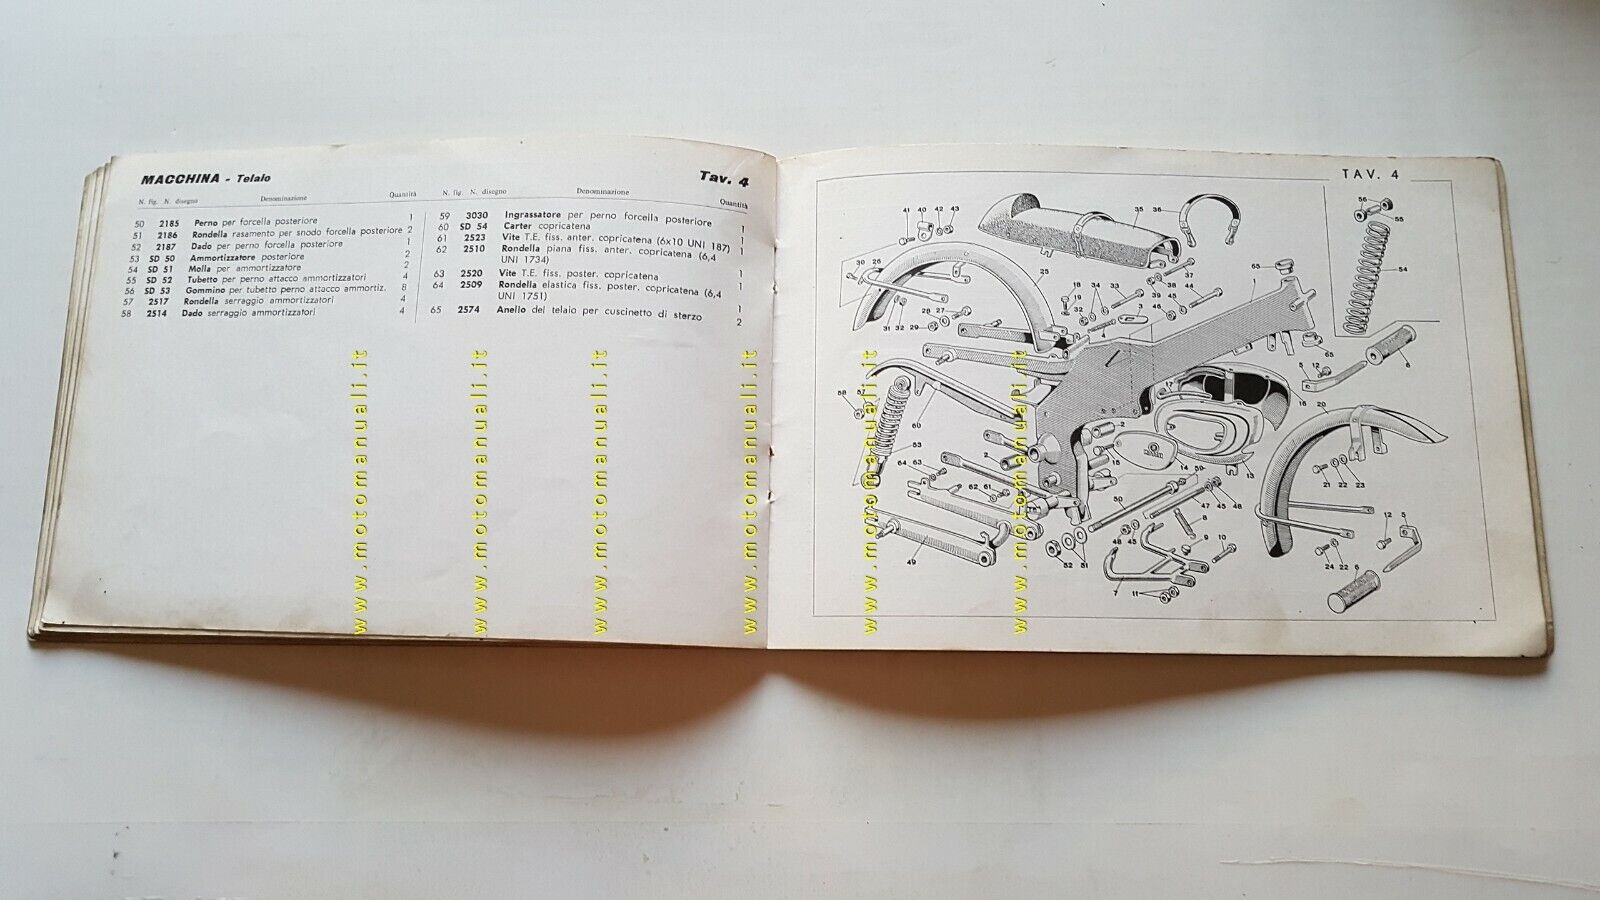 MACCHINA - Telaio
Tav. 4
N. fig. N. disegno Denominazione Quantità
50 2185 Perno per forcella posteriore 1
51 2186 Rondella rasamento per snodo forcella posteriore 2
52 2187 Dado per perno forcella posteriore 1
53 SD 50 Ammortizzatore posteriore 2
54 SD 51 Molla per ammortizzatore 2
55 SD 52 Tubetto per perno attacco ammortizzatori 4
56 SD 53 Gommino per tubetto perno attacco ammortiz. 8
57 2517 Rondella serraggio ammortizzatori 4
58 2514 Dado serraggio ammortizzatori 4
N. fig. N. disegno Denominazione Quantità
59 3030 Ingrassatore per perno forcella posteriore 1
60 SD 54 Carter copricatena 1
61 2523 Vite T.E. fiss. anter. copricatena (6x10 UNI 187) 1
62 2510 Rondella piana fiss. anter. copricatena (6,4 1
UNI 1734)
63 2520 Vite T.E. fiss. poster. copricatena 1
64 2509 Rondella elastica fiss. poster. copricatena (6,4 1
UNI 1751)
65 2574 Anello del telaio per cuscinetto di sterzo 2
TAV. 4
41 40 42 43 35 36 56
55
30 26 25 37 65 54
18 34 33 38 44
28 27 19 39 45
31 32 29 32 3 46
4 65
58 57 5 12 6
17 16 20
60 2
53 2 15
64 63 14 59 13 21 22 23
62 61 50
47 45 48 8 12 5
48 45 9 10
49 52 51 24 22 6
7 11
www.motomanuali.it
www.motomanuali.it
www.motomanuali.it
www.motomanuali.it
www.motomanuali.it
www.motomanuali.it